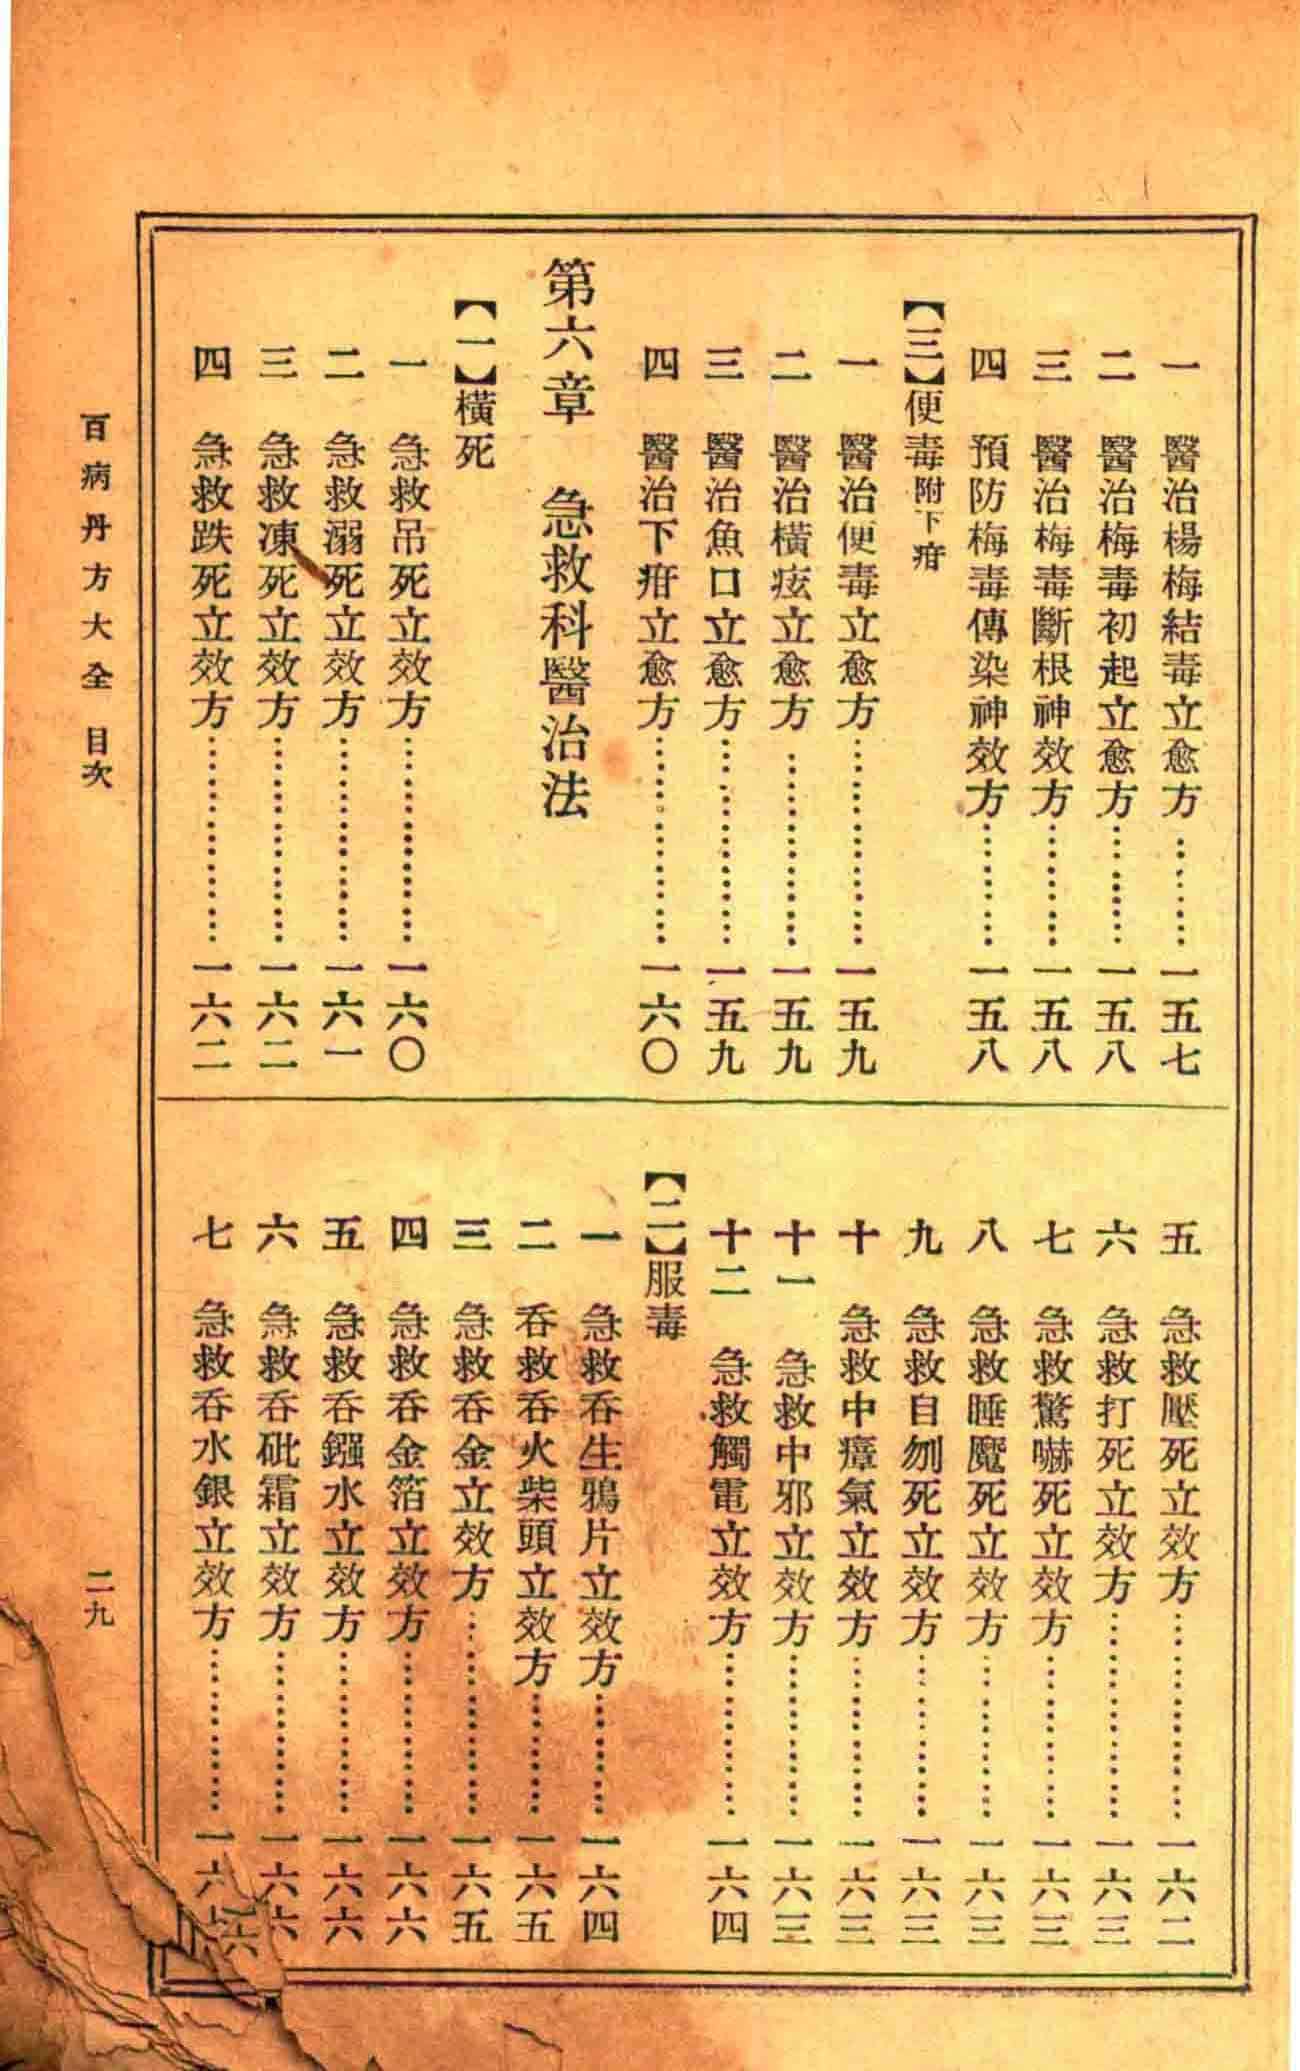 一　醫治楊梅結毒立愈方………一五七
二　醫治梅毒初起立愈方………一五八
三　醫治梅毒斷根神效方………一五八
四　預防梅毒傳染神效方………一五八
【三】便毒附下疳
一　醫治便毒立愈方……………一五九
二　醫治橫痃立愈方……………一五九
三　醫治魚口立愈方……………一五九
四　醫治下疳立愈方……………一六〇
第六章　急救科醫治法
【一】橫死
一　急救吊死立效方……………一六〇
二　急救溺死立效方……………一六一
三　急救凍死立效方……………一六二
四　急救跌死立效方……………一六二
五　急救壓死立效方……………一六二
六　急救打死立效方……………一六三
七　急救驚嚇死立效方…………一六三
八　急救睡魘死立效方…………一六三
九　急救自刎死立效方…………一六三
十　急救中瘴氣立效方…………一六三
十一　急救中邪立效方…………一六三
十二　急救觸電立效方…………一六四
【二】服毒
一　急救吞生鴉片立效方………一六四
二　吞救吞火柴頭立效方………一六五
三　急救吞金立效方……………一六五
四　急救吞金箔立效方…………一六六
五　急救吞鏹水立效方…………一六六
六　急救吞砒霜立效方…………一六六
七　急救吞水銀立效方…………一六
百病丹方大全　目次
二九